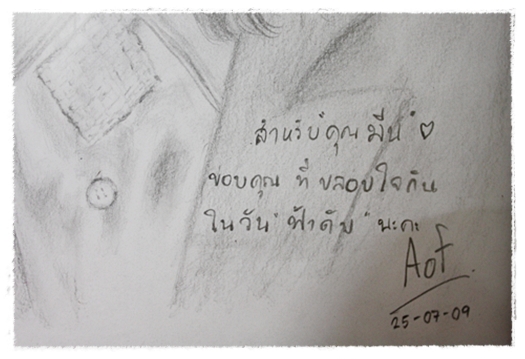 สำหรับ คุณ มีน ♡
ขอบคุณ ที่ ปลอบใจกัน
ใน วัน " ฟ้าดับ " นะคะ
AoF
25-07-09